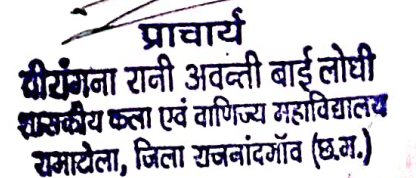 प्राचार्य
वीरांगना रानी अवन्ती बाई लोधी
शासकीय कला एवं वाणिज्य महाविद्यालय
घुमाटोला, जिला राजनांदगाँव (छ.ग.)